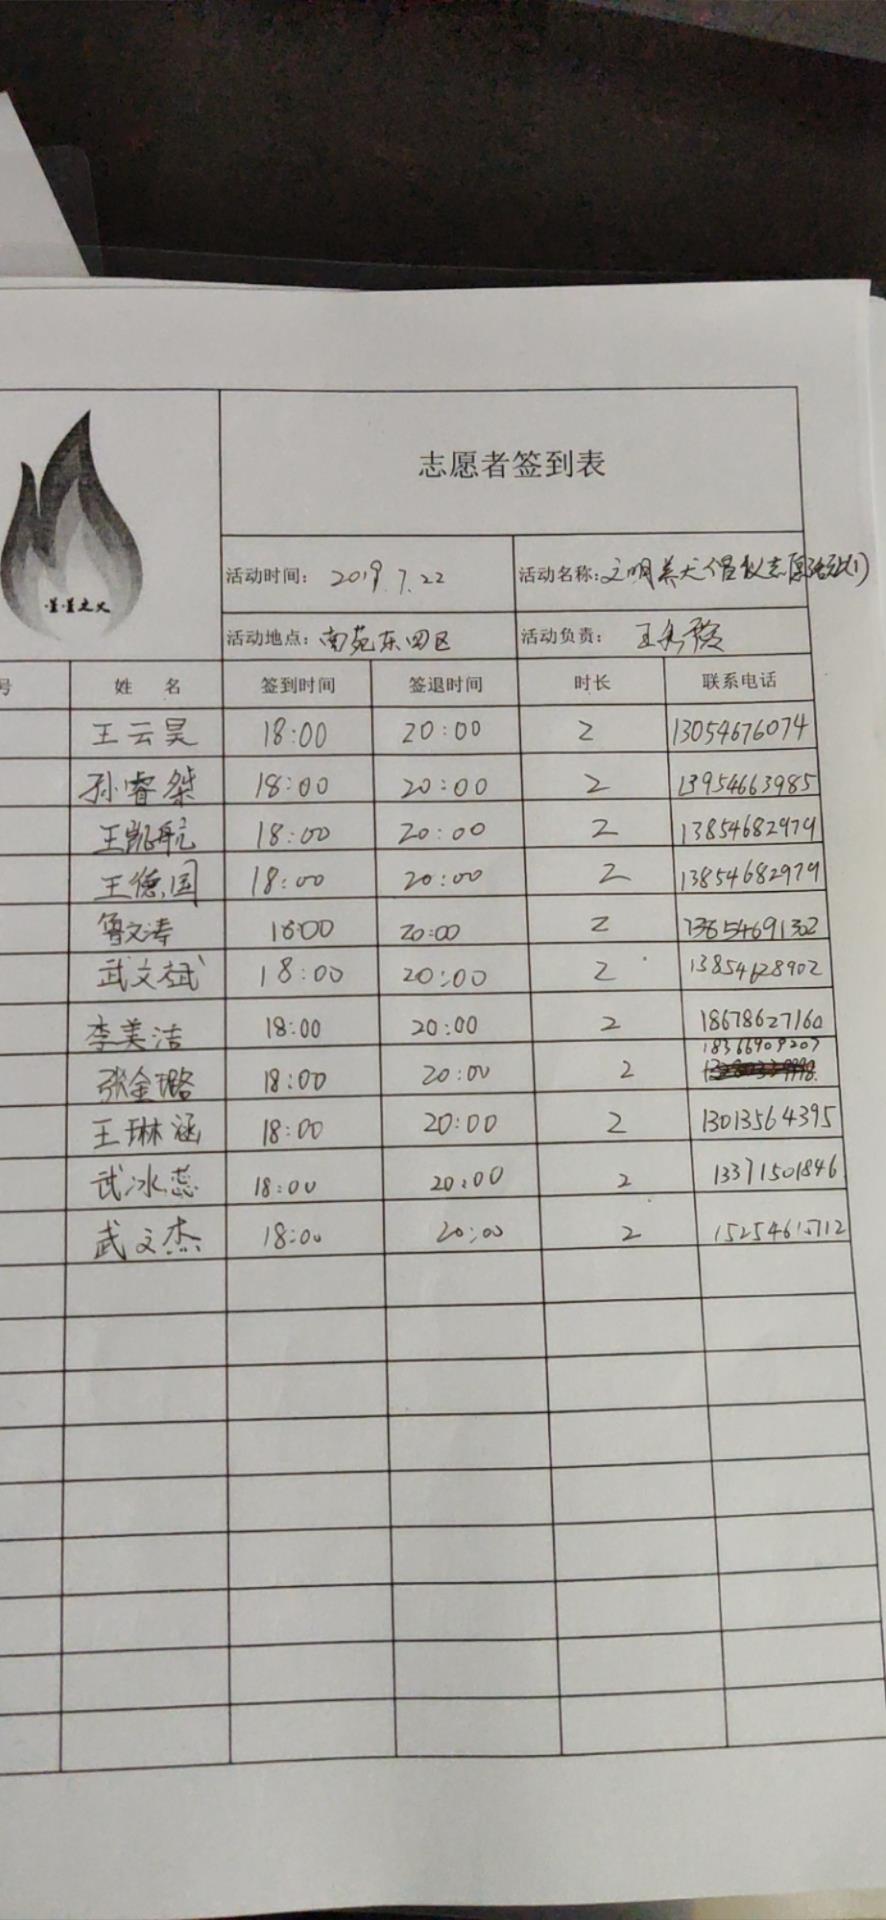 志愿者签到表
活动时间： 2019.7.22 活动名称：文明养犬倡议志愿活动(1)
星星之火
活动地点：南苑东四区 活动负责：
号 姓 名 签到时间 签退时间 时长 联系电话
王云昊 18:00 20:00 2 13054676074
孙睿桀 18:00 20:00 2 13954663985
王凯航 18:00 20:00 2 13854682979
王德国 18:00 20:00 2 13854682979
鲁文涛 18:00 20:00 2 13854691302
武文斌 18:00 20:00 2 13854628902
李美洁 18:00 20:00 2 18678627160
张金璐 18:00 20:00 2 18366909207
王琳涵 18:00 20:00 2 13013564395
武冰蕊 18:00 20:00 2 13371501846
武文杰 18:00 20:00 2 15254615712